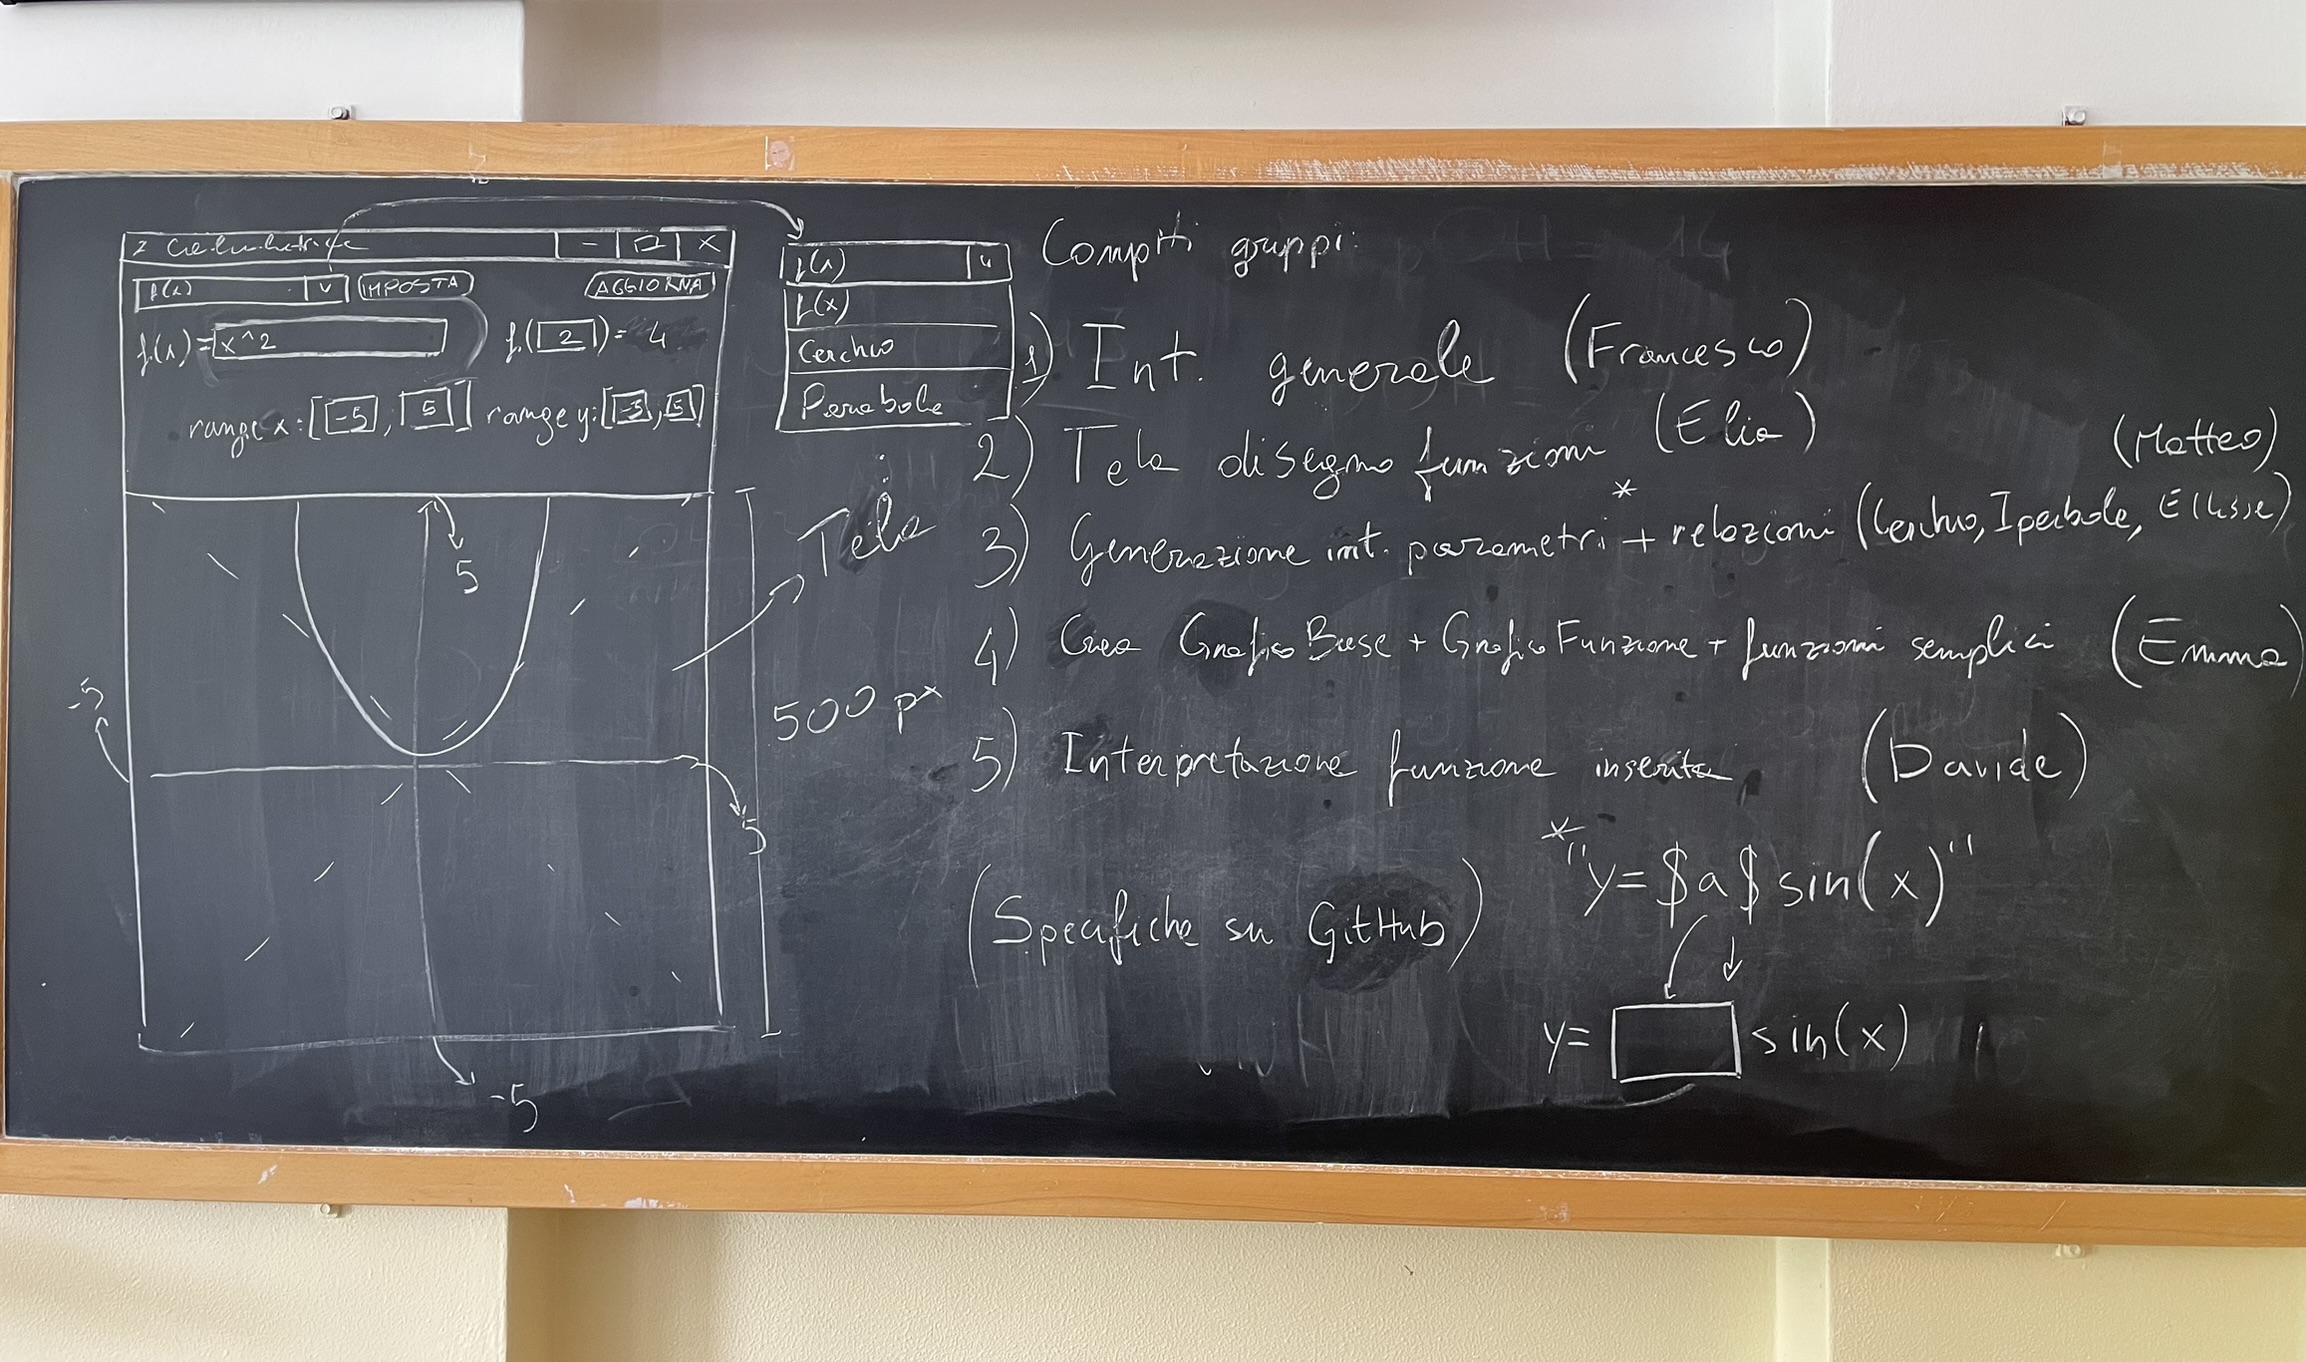 Calcolatrice - □ X
f(x) v IMPOSTA AGGIORNA
f(x)= x^2 f(2)= 4
range x: [-5, 5] range y: [-5, 5]
5
-5
5
-5
f(x) v
f(x)
Cerchio
Parabola
Tela
500 px
Compiti gruppi:
1) Int. generale (Francesco)
2) Tela disegno funzioni (Elia)
(Matteo)
3) Generazione int. parametri * + relazioni (Cerchio, Iperbole, Ellisse)
4) Crea GraficoBase + GraficoFunzione + funzioni semplici (Emma)
5) Interpretazione funzione inserita (Davide)
(Specifiche su GitHub)
* "y= $a$ sin(x)"
y= sin(x)